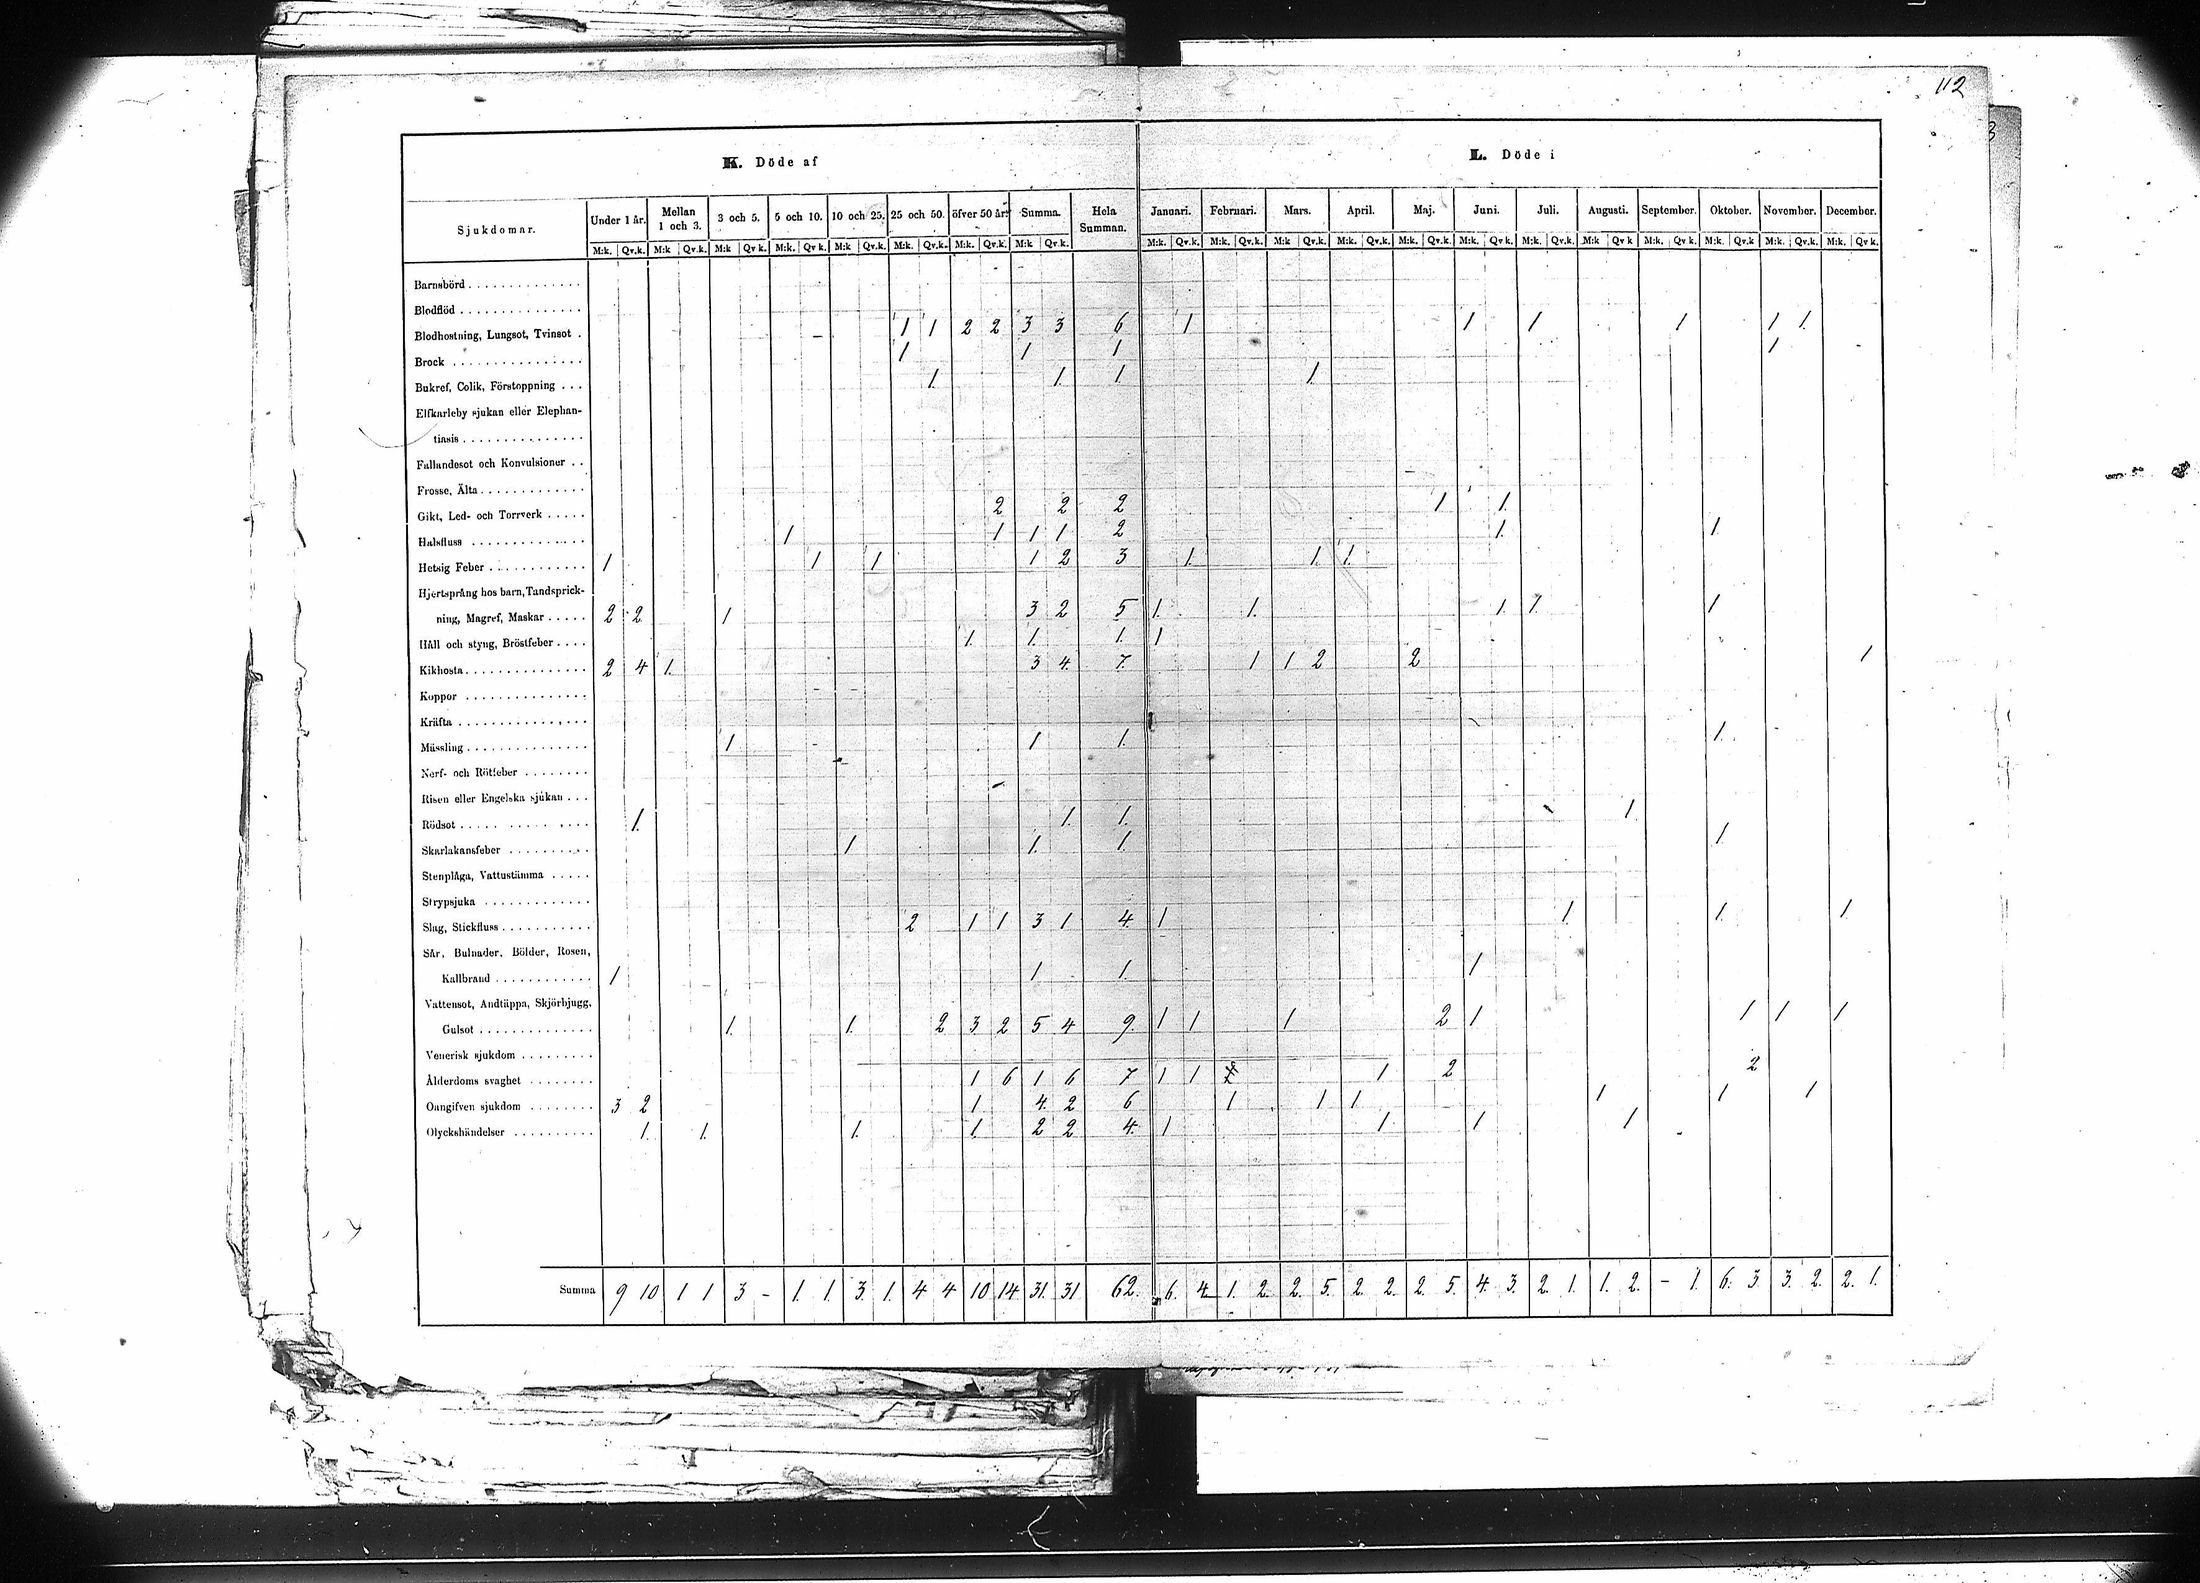 112
K. Döde af
L. Döde i
Sjukdomar. Under 1 år. Mellan 1 och 3. 3 och 5. 5 och 10. 10 och 25. 25 och 50. öfver 50 år. Summa. Hela Summan. Januari. Februari. Mars. April. Maj. Juni. Juli. Augusti. September. Oktober. November. December.
M:k. Qv.k. M:k Qv.k. M:k Qv k. M:k. Qv k. M:k Qv.k. M:k. Qv.k. M:k. Qv.k. M:k Qv.k. M:k. Qv.k. M:k. Qv.k. M:k Qv.k. M:k. Qv.k. M:k. Qv.k. M:k. Qv k. M:k. Qv.k. M:k Qv k M:k. Qv k. M:k. Qv.k M:k. Qv.k. M:k. Qv k.
Barnsbörd
Blodflöd
Blodhostning, Lungsot, Tvinsot . 1 1 2 2 3 3 6 1 1 1 1 1 1.
Brock 1 1 1 1
Bukref, Colik, Förstoppning . . . 1. 1. 1 1.
Elfkarleby sjukan eller Elephan-
tiasis
Fallandesot och Konvulsioner . .
Frosse, Älta
Gikt, Led- och Torrverk 2 2 2 1 1.
Halsfluss 1 1 1 1 2 1. 1
Hetsig Feber 1 1 1 1 2 3 1. 1. 1.
Hjertsprång hos barn, Tandsprick-
ning, Magref, Maskar 2 2 1 3 2 5 1. 1. 1. 1. 1
Håll och styng, Bröstfeber 1. 1. 1. 1
Kikhosta 2 4 1. 3 4. 7. 1 1 2 2 1
Koppor
Kräfta
Mässling 1 1 1. 1.
Nerf- och Rötfeber
Risen eller Engelska sjukan . . .
Rödsot 1. 1. 1. 1.
Skarlakansfeber 1 1. 1. 1.
Stenplåga, Vattustämma
Strypsjuka
Slag, Stickfluss 2 1 1 3 1 4. 1 1 1. 1.
Sår, Bulnader, Bölder, Rosen,
Kallbrand 1 1 1. 1
Vattensot, Andtäppa, Skjörbjugg,
Gulsot 1. 1. 2 3 2 5 4 9. 1 1 1 2 1 1 1 1
Venerisk sjukdom
Ålderdoms svaghet 1 6 1 6 7 1 1 1 2 2
Oangifven sjukdom 3 2 1 4. 2 6 1 1 1 1 1 1
Olyckshändelser 1. 1. 1. 1. 2 2 4. 1 1 1 1
Summa 9 10 1 1 3 - 1. 1. 3. 1. 4 4 10 14 31. 31 62. 6. 4 1. 2. 2. 5. 2. 2. 2. 5. 4. 3. 2. 1. 1. 2. - 1. 6. 3. 3. 2. 2. 1.